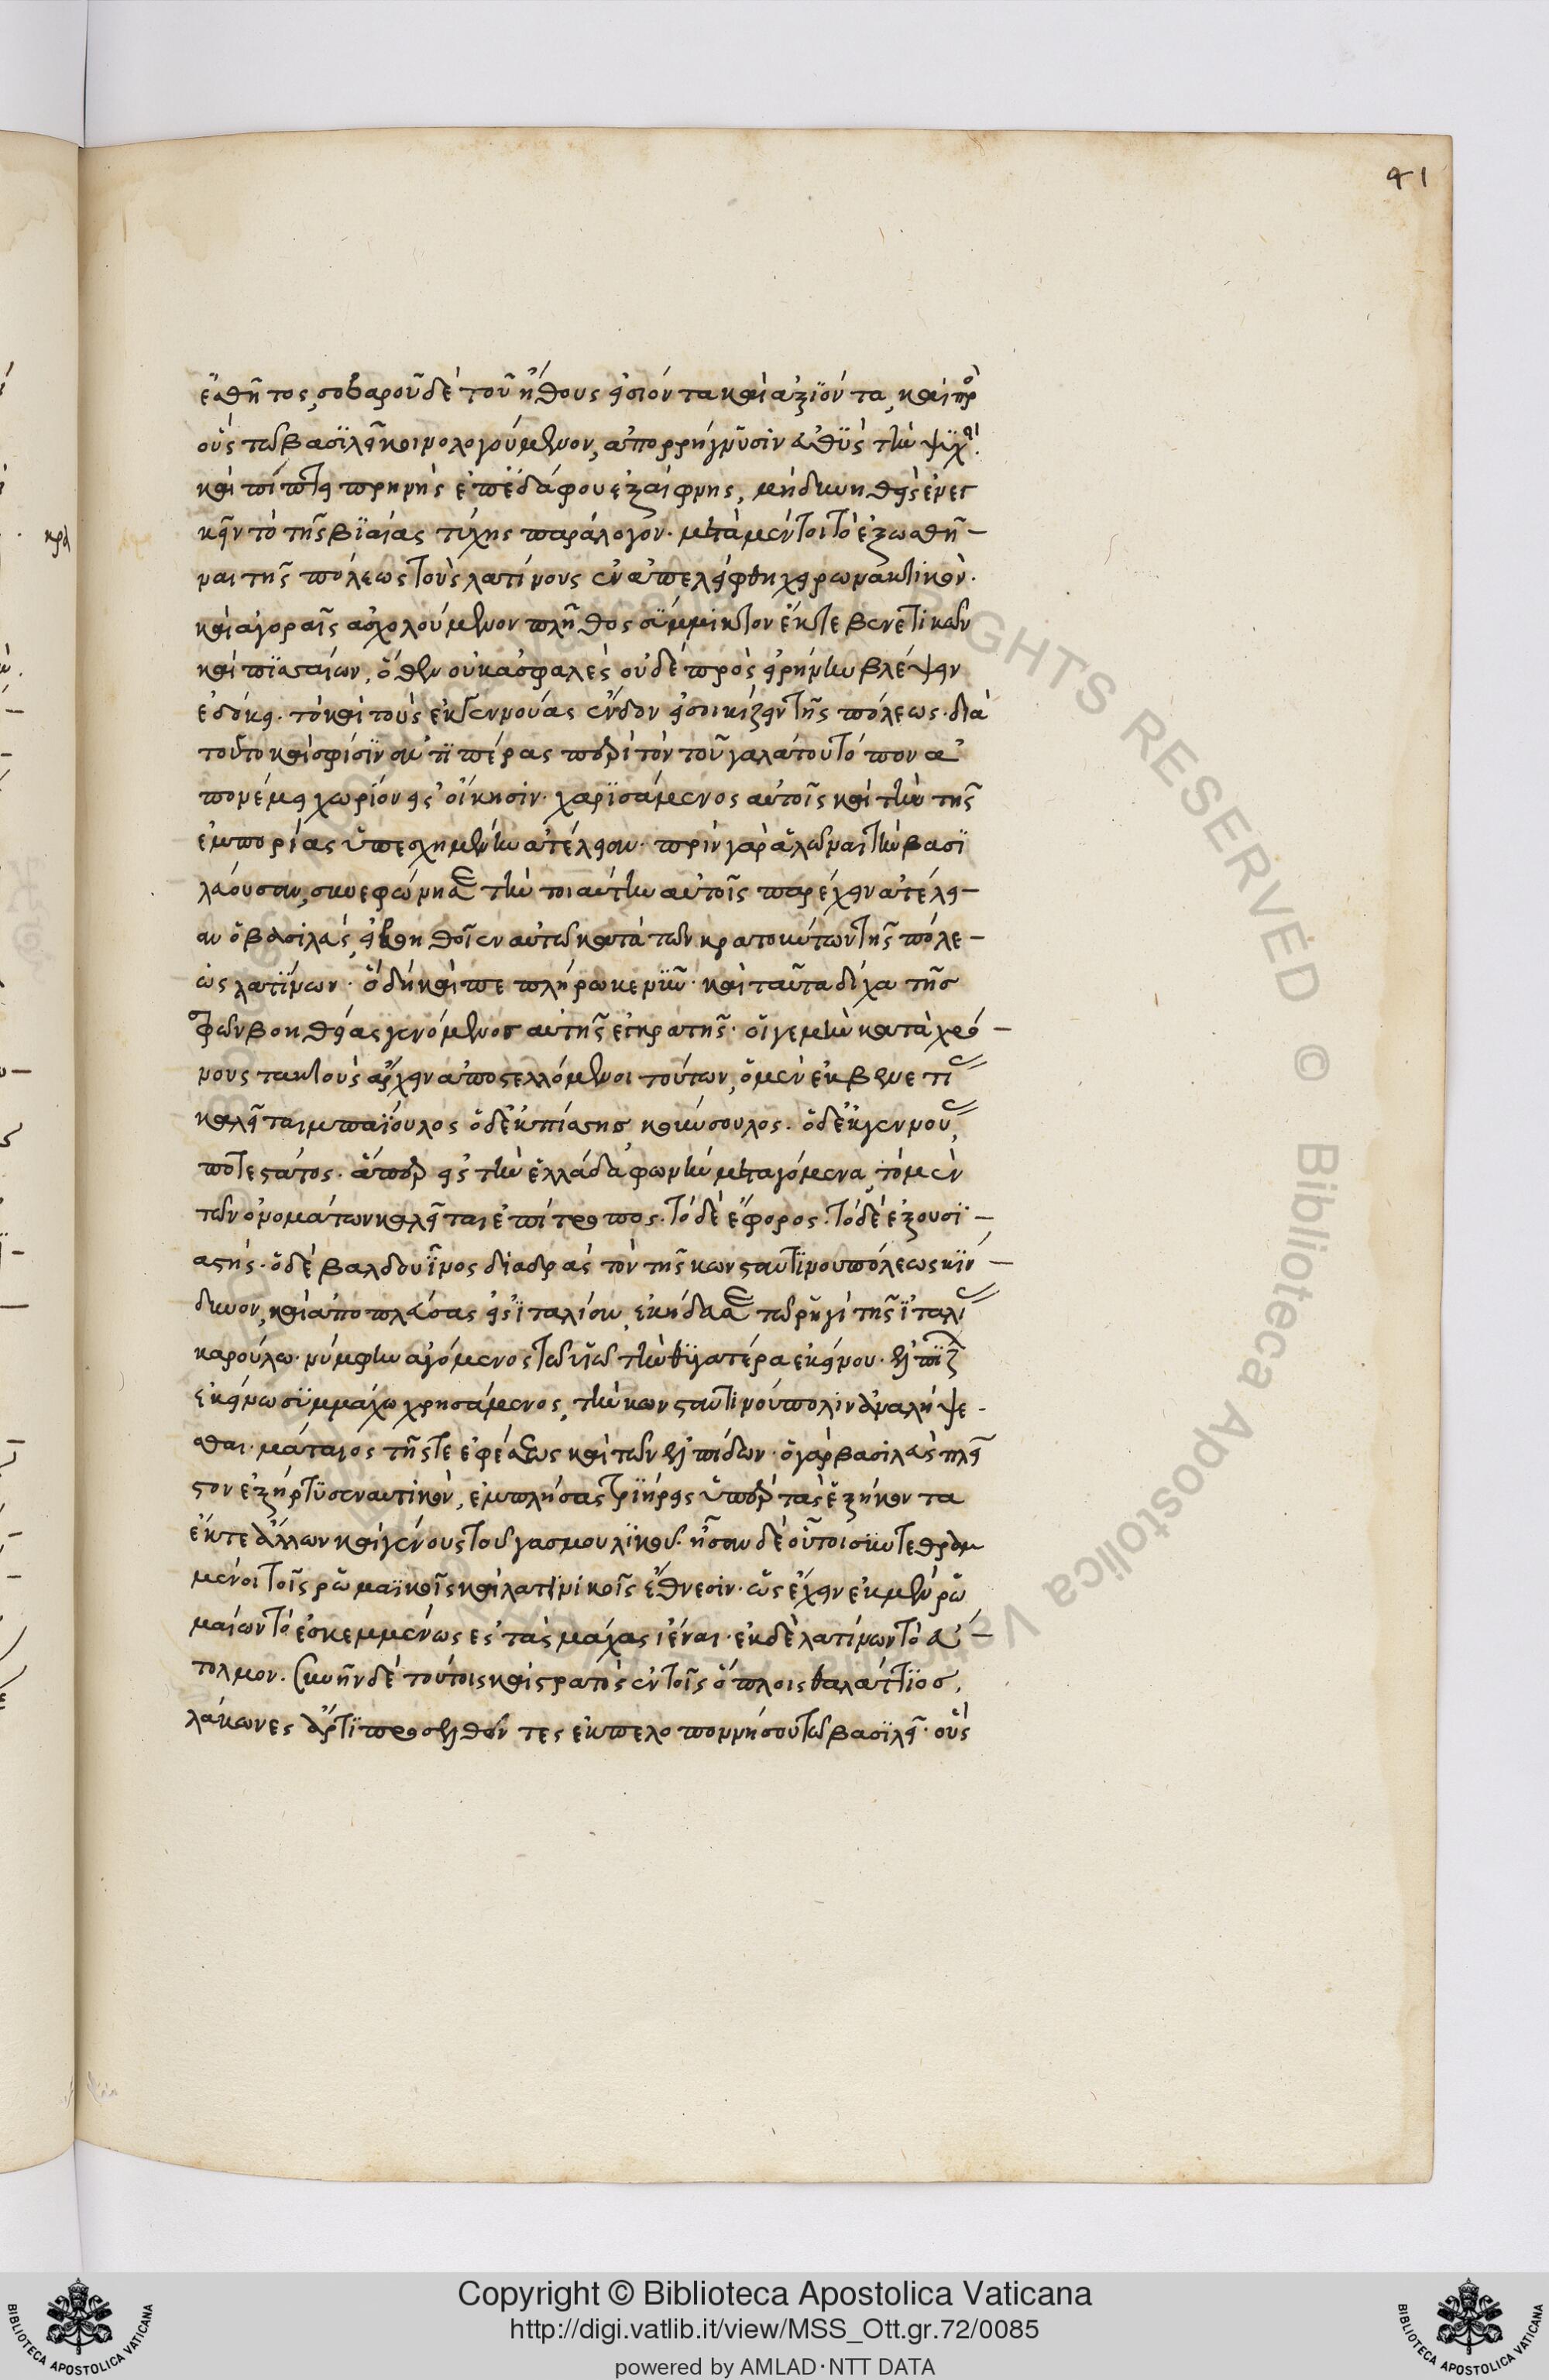 41
ἐσθῆτος, σοβαροῦ δὲ τοῦ ἤθους εἰσιόντα καὶ ἀξιόντα, καὶ πρὸ
οὓς τῶ βασιλεῖ κοινολογούμενον, ἀπορρήγνυσιν εὐθὺς τὴν ψυχὴ
καὶ πίπτει πρηνὴς ἐπ' ἐδάφου ἐξαίφνης, μὴ δυνηθεὶς ἐνεγ
κεῖν τὸ τῆς βιαίας τύχης παράλογον. μετὰ μέντοι τὸ ἐξωσθῆ-
ναι τῆς πόλεως τοὺς λατίνους ἐναπελείφθη χειρωνακτικὸν.
καὶ ἀγοραῖς ἀσχολούμενον πλῆθος σύμμικτον ἔκ τε βενετικῶν
καὶ πισσαίων, ὅθεν οὐκ ἀσφαλὲς οὐδὲ πρὸς εἰρήνην βλέψειν
ἐδόκει. τὸ καὶ τοὺς ἐκ γεννούας ἔνδον εἰσοικίζειν τῆς πόλεως. διὰ
τοῦτο καὶ σφίσιν ἀντιπέρας περὶ τὸν τοῦ γαλάτου τόπον ἀ
πονέμει χωρίον εἰς οἴκησιν. χαρισάμενος αὐτοῖς καὶ τὴν τῆς
ἐμπορίας ὑπεσχημένην ἀτέλειαν. πρὶν γὰρ ἁλῶναι τὴν βασι
λεύουσαν, συνεφώνησε τὴν τοιαύτην αὐτοῖς παρέχειν ἀτέλει-
αν ὁ βασιλεὺς, εἰ βοηθοῖεν αὐτῶ κατὰ τῶν κρατούντων τῆς πόλε-
ως λατίνων. ὃ δὴ καὶ πεπλήρωκε νῦν. καὶ ταῦτα δίχα τῆς
σφῶν βοηθείας γενόμενος αὐτῆς ἐγκρατὴς. οἵ γε μὴν κατὰ χρό-
νους τακτοὺς ἄρχειν ἀποστελλόμενοι τούτων, ὁ μὲν ἐκ βενετί
καλεῖται μπαϊουλος ὁ δ' ἐκ πίσσης κωνσουλος. ὁ δ' ἐκ γεννού,
ποτεστάτος. ἅπερ εἰς τὴν ἑλλάδα φωνὴν μεταγόμενα, τὸ μὲν
τῶν ὀνομάτων καλεῖται ἐπίτροπος. τὸ δὲ ἔφορος. τὸ δὲ ἐξουσι-
αστής. ὁ δὲ βαλδουῖνος διαδρὰς τὸν τῆς κωνσταντινουπόλεως κίν-
δυνον, καὶ ἀποπλεύσας εἰς ἰταλίαν, ἐκήδευσε τῶ ρηγὶ τῆς ἰταλί
καρούλω. νύμφην ἀγόμενος τῶ υἱῶ τὴν θυγατέρα ἐκείνου. ἐλπίζ
ἐκείνω συμμάχω χρησάμενος, τὴν κωνσταντινούπολιν ἀναλήψε-
σθαι. μάταιος τῆς τε ἐφέσεως καὶ τῶν ἐλπίδων. ὁ γὰρ βασιλεὺς πλεῖ
στον ἐξήρτυσε ναυτικὸν, ἐμπλήσας τριήρεις ὑπὲρ τὰς ἑξήκοντα
ἔκ τε ἄλλων καὶ γένους τοῦ γασμουλικοῦ. ἦσαν δὲ οὗτοι συντεθραμ
μένοι τοῖς ρωμαϊκοῖς καὶ λατινικοῖς ἔθνεσιν. ὡς ἔχειν ἐκ μὲν ρω
μαίων τὸ ἐσκεμμένως ἐς τὰς μάχας ἰέναι. ἐκ δὲ λατίνων τὸ εὔ-
τολμον. συνῆν δὲ τούτοις καὶ στρατὸς ἐν τοῖς ὅπλοις θαλάττιος,
λάκωνες ἄρτι προσελθόντες ἐκ πελοποννήσου τῶ βασιλεῖ. οὓς
Copyright © Biblioteca Apostolica Vaticana
http://digi.vatlib.it/view/MSS_Ott.gr.72/0085
powered by AMLAD·NTT DATA